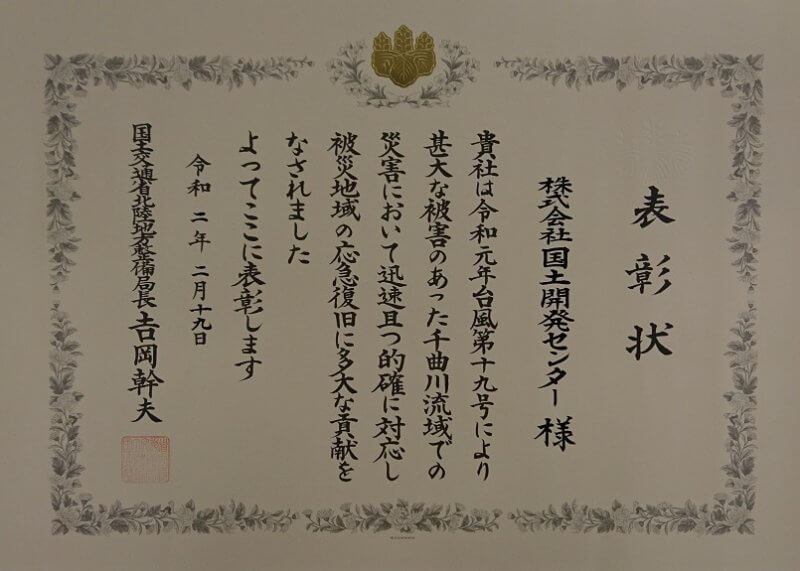 表彰状
株式会社国土開発センター 様
貴社は令和元年台風第十九号により
甚大な被害のあった千曲川流域での
災害において迅速且つ的確に対応し
被災地域の応急復旧に多大な貢献を
なされました
よってここに表彰します
令和二年二月十九日
国土交通省北陸地方整備局長 吉岡幹夫